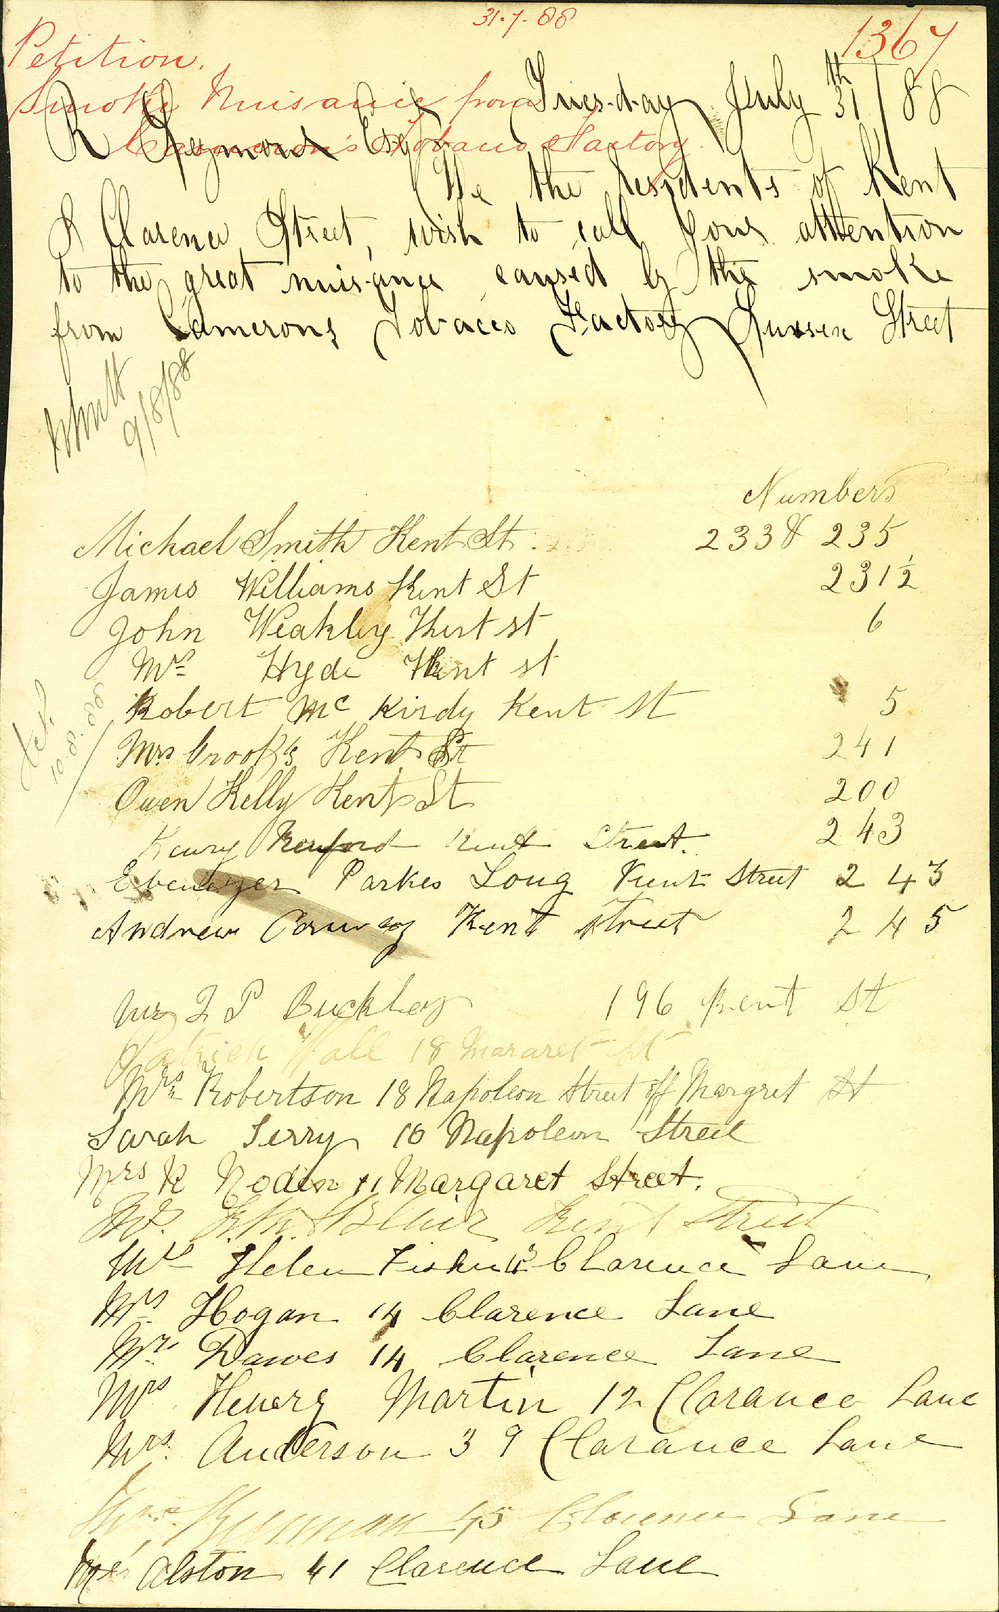 31.7.88
1367
Petition.
Smoke Nuisance from
Cameron's Tobacco Factory.
Tuesday July 31th / 88
R Seymour Esq
We the residents of Kent
& Clarence Street, wish to call your atttention
to the great nuisance caused by the smoke
from Camerons Tobacco Factory Sussex Street
9/8/88
Numbers
Michael Smith Kent St 233 & 235
James Williams Kent St 231½
John Weakley Kent st 6
Mrs Hyde Kent st
Robert Mc Kirdy Kent St 5
Mrs Crooks Kent St 241
Owen Kelly Kent St 200
10.8.88
Henry Kent Street. 243
Ebenezer Parkes Long Kent Street 243
Andrew Conway Kent Street 245
J P Buckley 196 Kent St
Patrick Wall 18 Mararet St
Mrs Robertson 18 Napoleon Street off Margret St
Sarah Terry 10 Napoleon Street
Mrs R Nodin 11 Margaret Street.
Kent Street
Mrs Helen Fisher Clarence Lane
Mrs Hogan 14 Clarence Lane
Mrs Dawes 14 Clarence Lane
Mrs Henery Martin 12 Clarance Lane
Mrs. Anderson 39 Clarance Lane
45 Clarence Lane
Mrs Alston 41 Clarence Lane